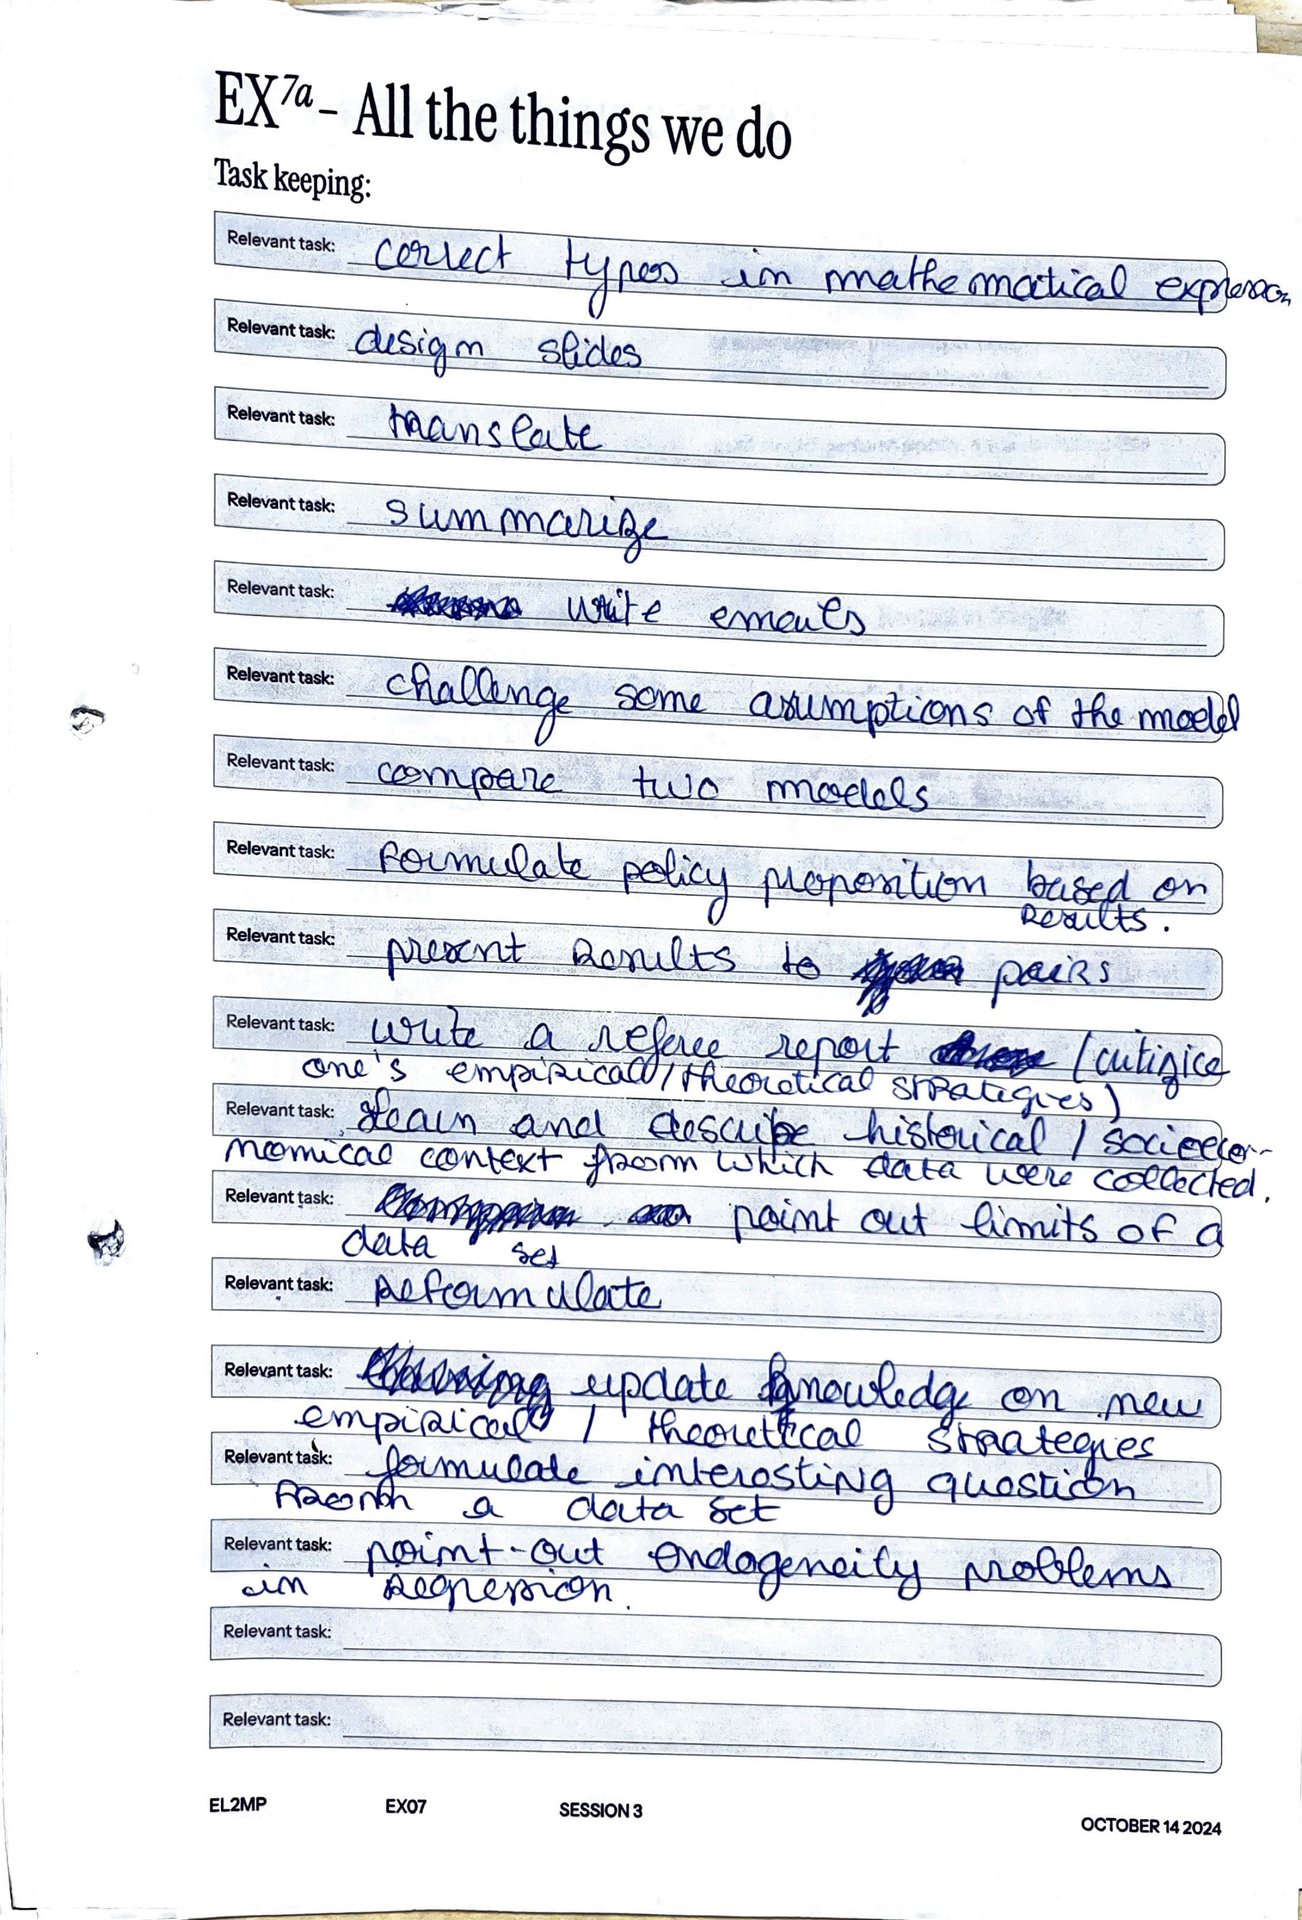 EX7a – All the things we do
Task keeping:
Relevant task: correct typos in mathematical expression
Relevant task: design slides
Relevant task: translate
Relevant task: summarize
Relevant task: write emails
Relevant task: challenge some assumptions of the model
Relevant task: compare two models
Relevant task: formulate policy proposition based on
results.
Relevant task: present results to pairs
Relevant task: write a referee report (critizice
one's empirical / theoretical strategies)
Relevant task: learn and describe historical / socioeco-
nomical context from which data were collected.
Relevant task: point out limits of a
data set
Relevant task: Reformulate
Relevant task: update knowledge on new
empirical / theoretical strategies
Relevant task: formulate interesting question
from a data set
Relevant task: point-out endogeneity problems
in regression.
Relevant task:
Relevant task:
EL2MP EX07 SESSION 3 OCTOBER 14 2024